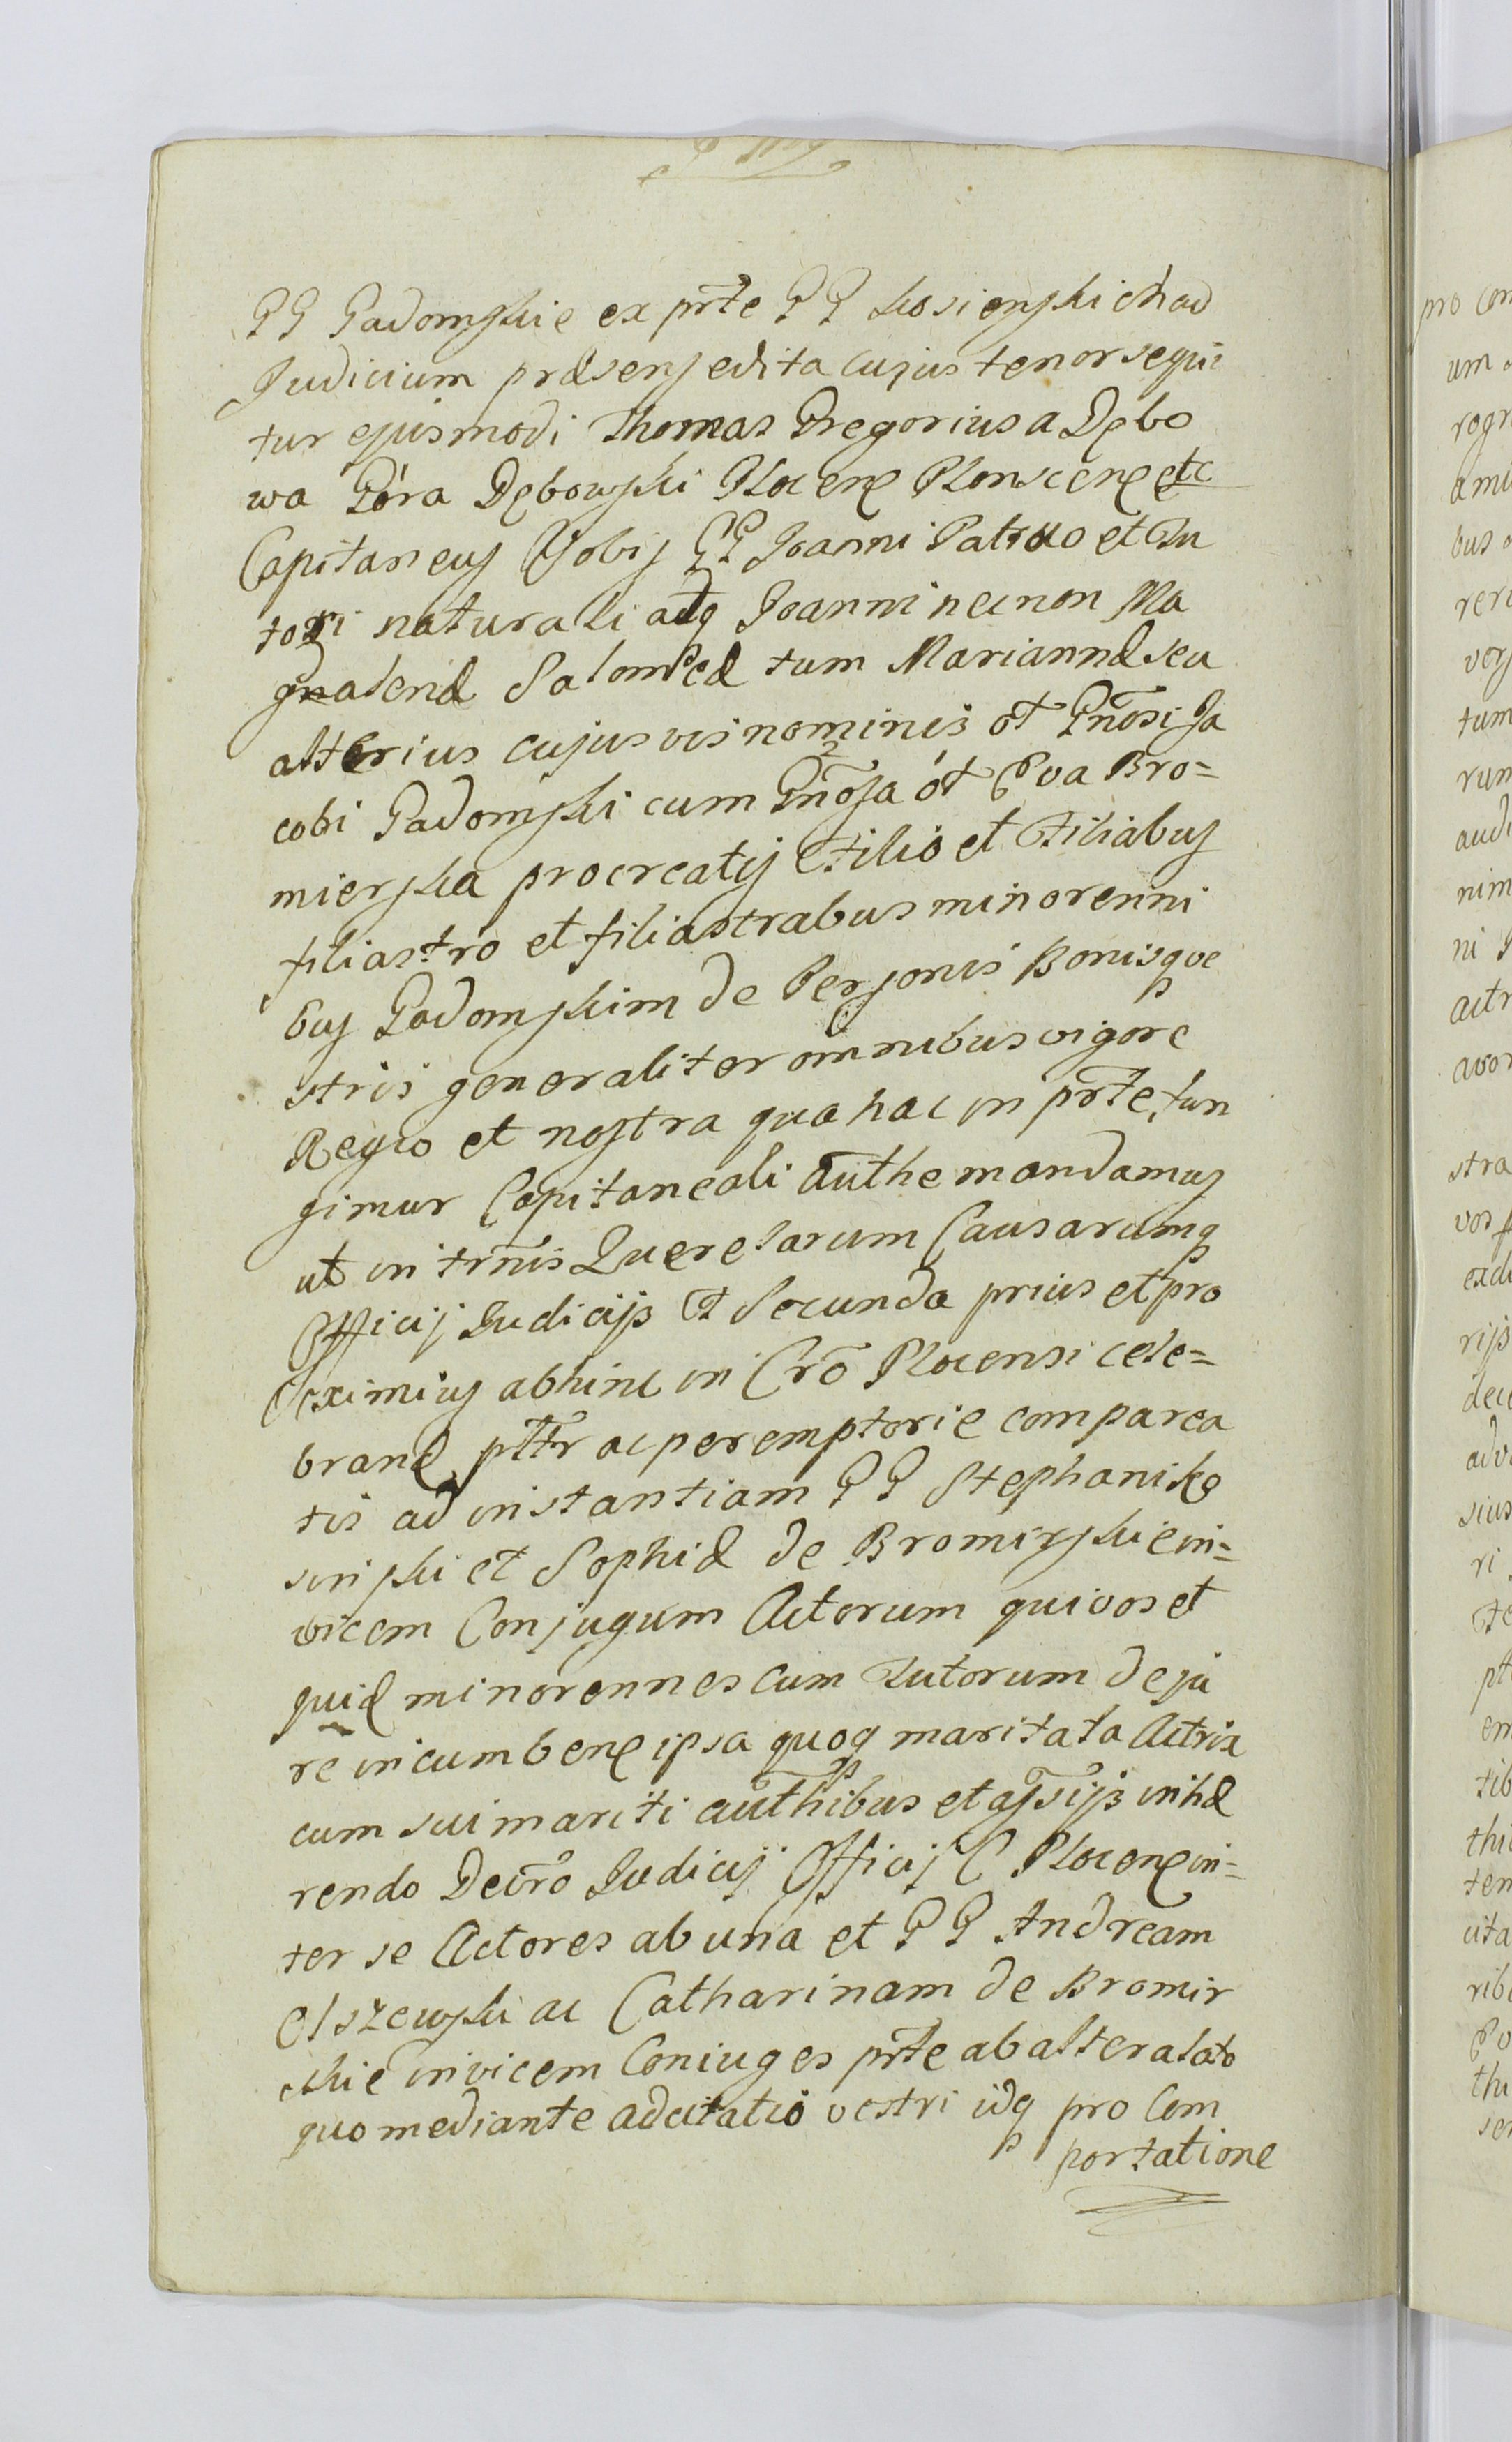 GG Gadomskie ex prte GG Kosienskich ad
Judicium præsens edita cujus tenor sequi
tur ejusmodi Thomas Gregorius a Dębo
wa Góra Dębowski Plocens Plonscens etc
Capitaneus Vobis GG Joanni Patruo et Tu
tori naturali adq Joanni necnon Ma
gdalenæ Salomeæ tum Mariannæ seu
alterius cujusvis nominis ol Gnosi Ja
cobi Gadomski cum Gnosa ol Eva Bro=
mierska procreatis Filio et Filiabus
filiastro et filiastrabus minorenni
bus Gadomskim de Personis Bonisque
stris generaliter omnibus vigore
Regio et nostra qua hac in prte fun
gimur Capitaneali authe mandamus
ut in trnis Querelarum Causarumq
Officij Judicijs et Secunda prius et pro
ximius abhinc in Cro Plocensi cele=
brand pttr ac peremptorie comparea
tis ad instantiam GG Stephani Ko
sinski et Sophiæ de Bromirskie in=
vicem Conjugum Actorum qui vos et
quid minorennes cum Tutorum de ju
re incumbens ipsa quoq maritata Actrix
cum sui mariti authibus et assijs inhæ
rendo Decro Judicij Officij C Plocens in=
ter se Actores ab una et GG Andream
Olszewski ac Catharinam de Bromir
skie invicem Coniuges prte ab altera lato
quo mediante adcitatio vestri idq pro Com
portatione